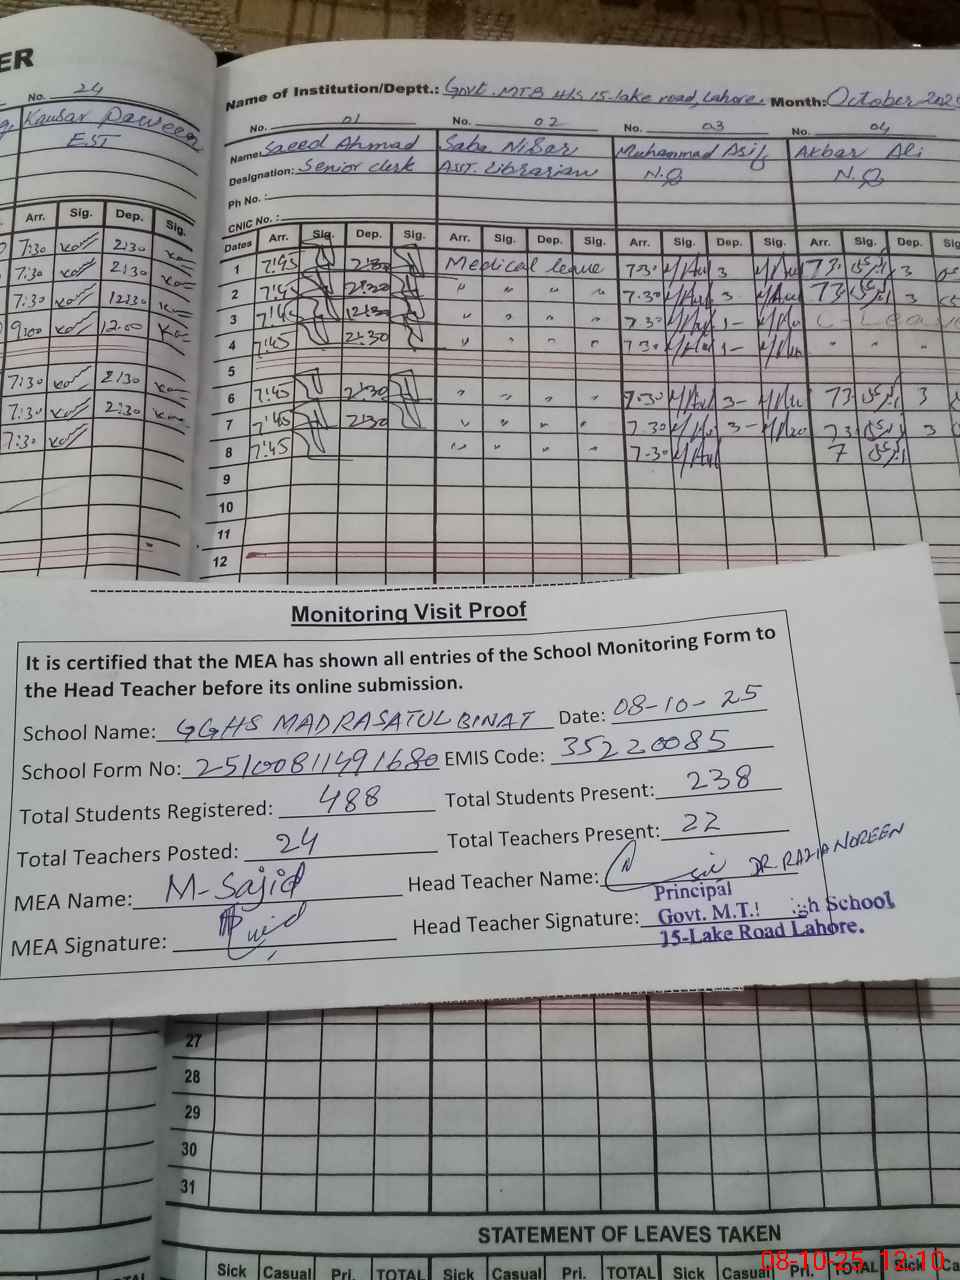 ER
No. 24
Kausar Parveen
EST
Arr. Sig. Dep. Sig.
7:30 2:30
7:30 2:30
7:30 12:30
9:00 12:00
7:30 2:30
7:30 2:30
7:30
Name of Institution/Deptt.: Govt. MTB H/S 15-lake road, Lahore. Month: October 202
No. 01 No. 02 No. 03 No. 04
Name: Saeed Ahmad Saba Nisar Muhammad Asif Akbar Ali
Designation: Senior clerk Asst. Librarian N.Q N.Q
Ph No.:
CNIC No.:
Dates Arr. Sig. Dep. Sig. Arr. Sig. Dep. Sig. Arr. Sig. Dep. Sig. Arr. Sig. Dep. Sig
1 7:45 2:30 Medical leave 7.30 3 73 3
2 7:45 2:30 " " " " 7.30 3- 73 3
3 7:45 12:30 " " " " 7.30 1- C-Leave
4 7:45 2:30 " " " " 7.30 1- " " "
5
6 7:45 2:30 " " " " 7.30 3- 73 3
7 7:45 2:30 " " " " 7.30 3- 73 3
8 7:45 " " " " 7.30 7
9
10
11
12
Monitoring Visit Proof
It is certified that the MEA has shown all entries of the School Monitoring Form to
the Head Teacher before its online submission.
School Name: GGHS MADRASATUL BINAT Date: 08-10-25
School Form No: 25100811491680 EMIS Code: 35220085
Total Students Registered: 488 Total Students Present: 238
Total Teachers Posted: 24 Total Teachers Present: 22
MEA Name: M-Sajid Head Teacher Name: DR. RAZIA NOREEN
MEA Signature: Head Teacher Signature:
Principal
Govt. M.T. gh School
15-Lake Road Lahore.
27
28
29
30
31
STATEMENT OF LEAVES TAKEN
Sick Casual Pri. TOTAL Sick Casual Pri. TOTAL Sick Casual Pri. TOTAL Sick Ca
08-10-25 12:10